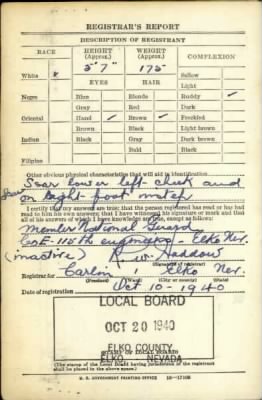 REGISTRAR'S REPORT
DESCRIPTION OF REGISTRANT
RACE HEIGHT (Approx.) WEIGHT (Approx.) COMPLEXION
5' 7" 175
White Sallow
EYES HAIR Light
Negro Blue Blonde Ruddy ✓
Gray Red Dark
Oriental Hazel ✓ Brown ✓ Freckled
Brown Black Light brown
Indian Black Gray Dark brown
Bald Black
Filipino
Other obvious physical characteristics that will aid in identification
Scar lower left cheek and
Scar on right foot
I certify that my answers are true; that the person registered has read or has had
read to him his own answers; that I have witnessed his signature or mark and that
all of his answers of which I have knowledge are true, except as follows:
Member National Guard
Co E - 115th Engineers - Elko Nev.
(inactive)
(Signature of registrar)
Registrar for Carlin Elko Nev.
(Precinct) (Ward) (City or county) (State)
Date of registration Oct 10 - 1940
LOCAL BOARD
OCT 20 1940
ELKO COUNTY
STAMP OF LOCAL BOARD
ELKO, NEVADA
(The stamp of the Local Board having jurisdiction of the registrant
shall be placed in the above space.)
U. S. GOVERNMENT PRINTING OFFICE 16—17105